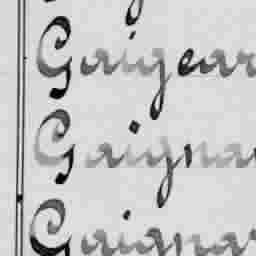 Gaigear
Gaignar
Gaignar